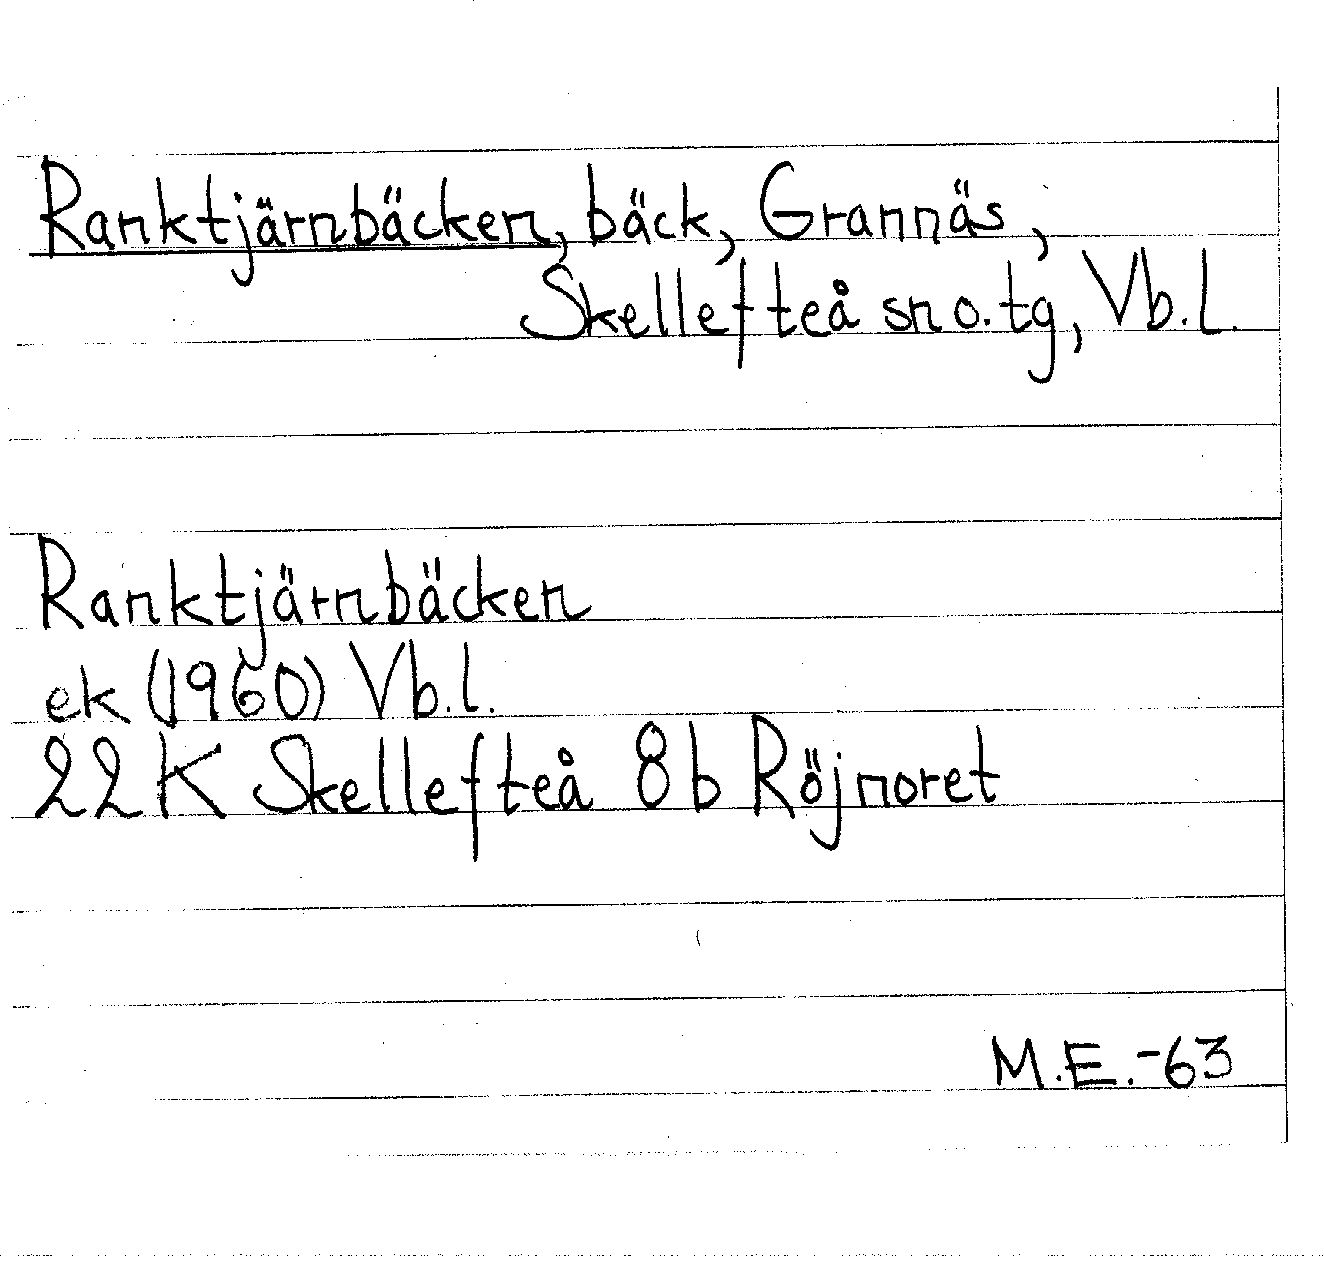 Ranktjärnbäcken, bäck, Grannäs,
Skellefteå sn o. tg, Vb. l.
Ranktjärnbäcken
ek (1960) Vb. l.
22 K Skellefteå 8b Röjnoret
M.E.-63